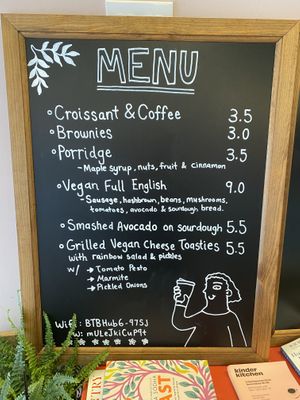 MENU
Croissant & Coffee 3.5
Brownies 3.0
Porridge 3.5
- Maple syrup, nuts, fruit & cinnamon
Vegan Full English 9.0
- Sausage, hashbrown, beans, mushrooms,
tomatoes, avocado & sourdough bread.
Smashed Avocado on sourdough 5.5
Grilled Vegan Cheese Toasties 5.5
with rainbow salad & pickles
w/ → Tomato Pesto
→ Marmite
→ Pickled Onions
WiFi: BTBHub6-97SJ
pw: mULeJkiCuP9t
kinder
kitchen